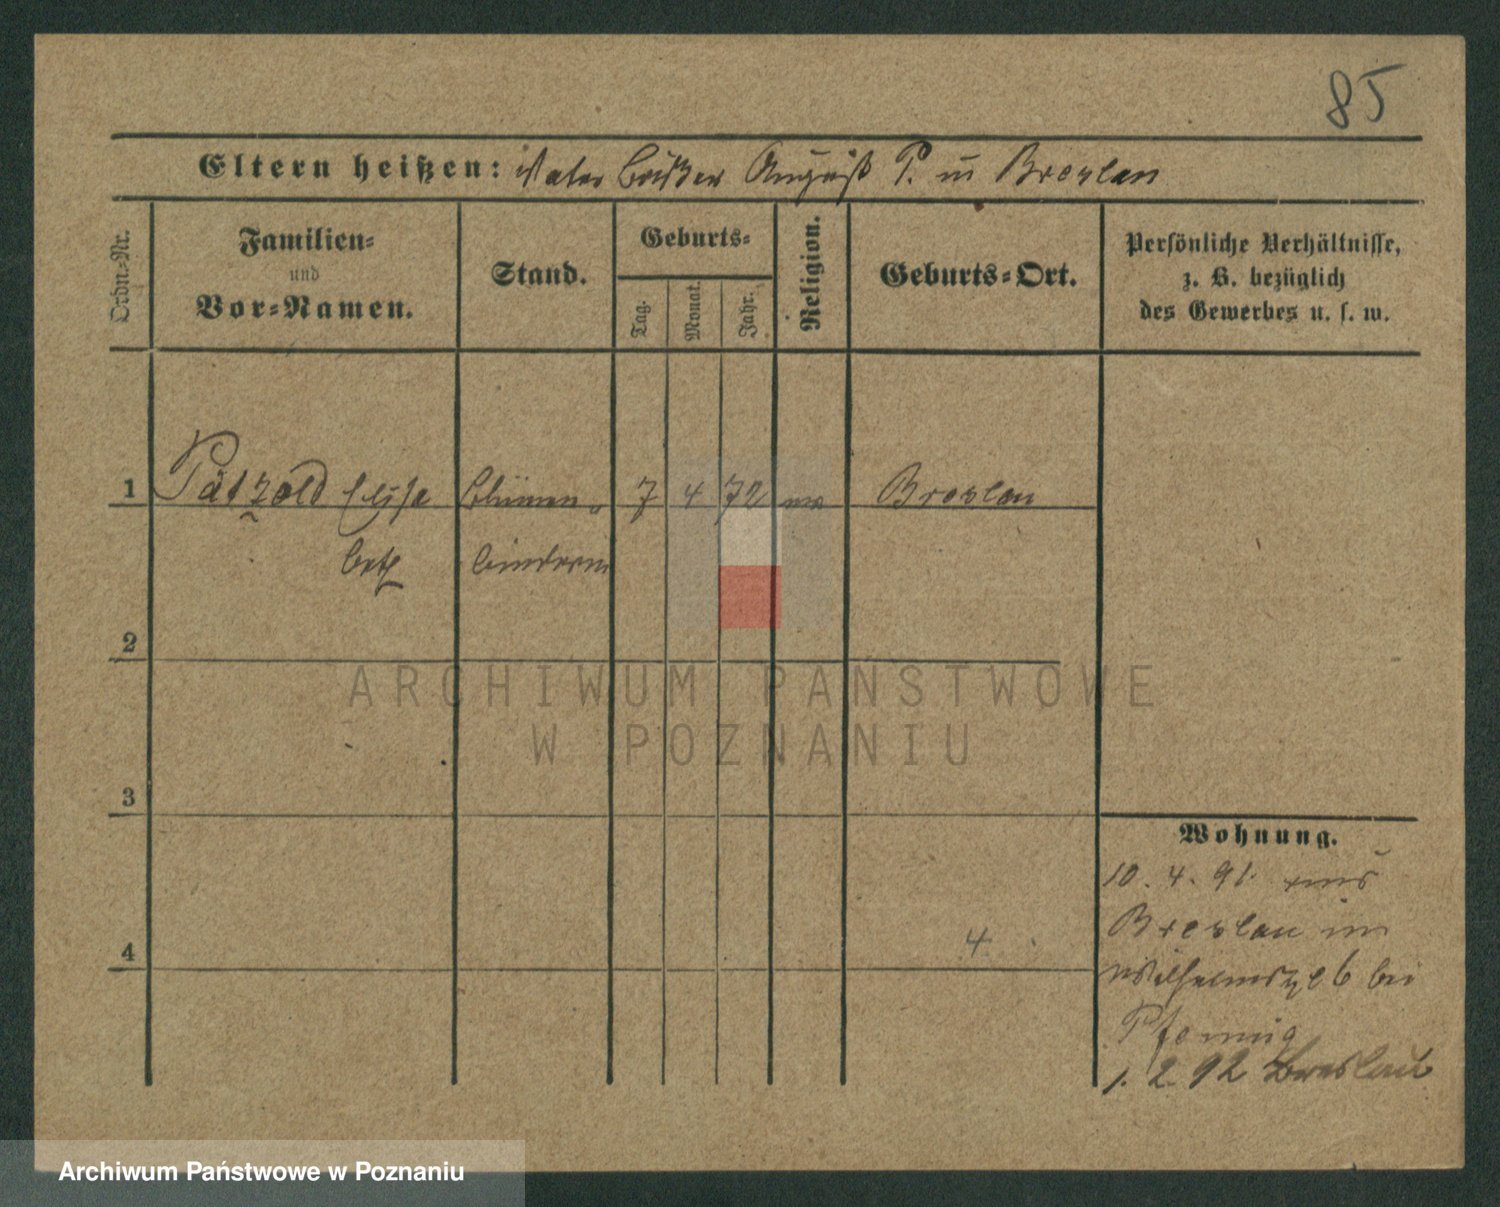 85
Eltern heißen: Vater August P. in Breslau
Ordn.-Nr.
Familien-
und
Vor-Namen.
Stand.
Geburts-
Tag.
Monat.
Jahr.
Religion.
Geburts-Ort.
Persönliche Verhältnisse,
z. B. bezüglich
des Gewerbes u. s. w.
1 Pätzold Elisa Blumen- 7 4 72 Breslau
beth binderin
2
3
4
Wohnung.
10. 4. 91. aus
Breslau in
Wilhelmspl 6 bei
Pfennig
1. 2 92 Breslau
4
ARCHIWUM PAŃSTWOWE
W POZNANIU
Archiwum Państwowe w Poznaniu